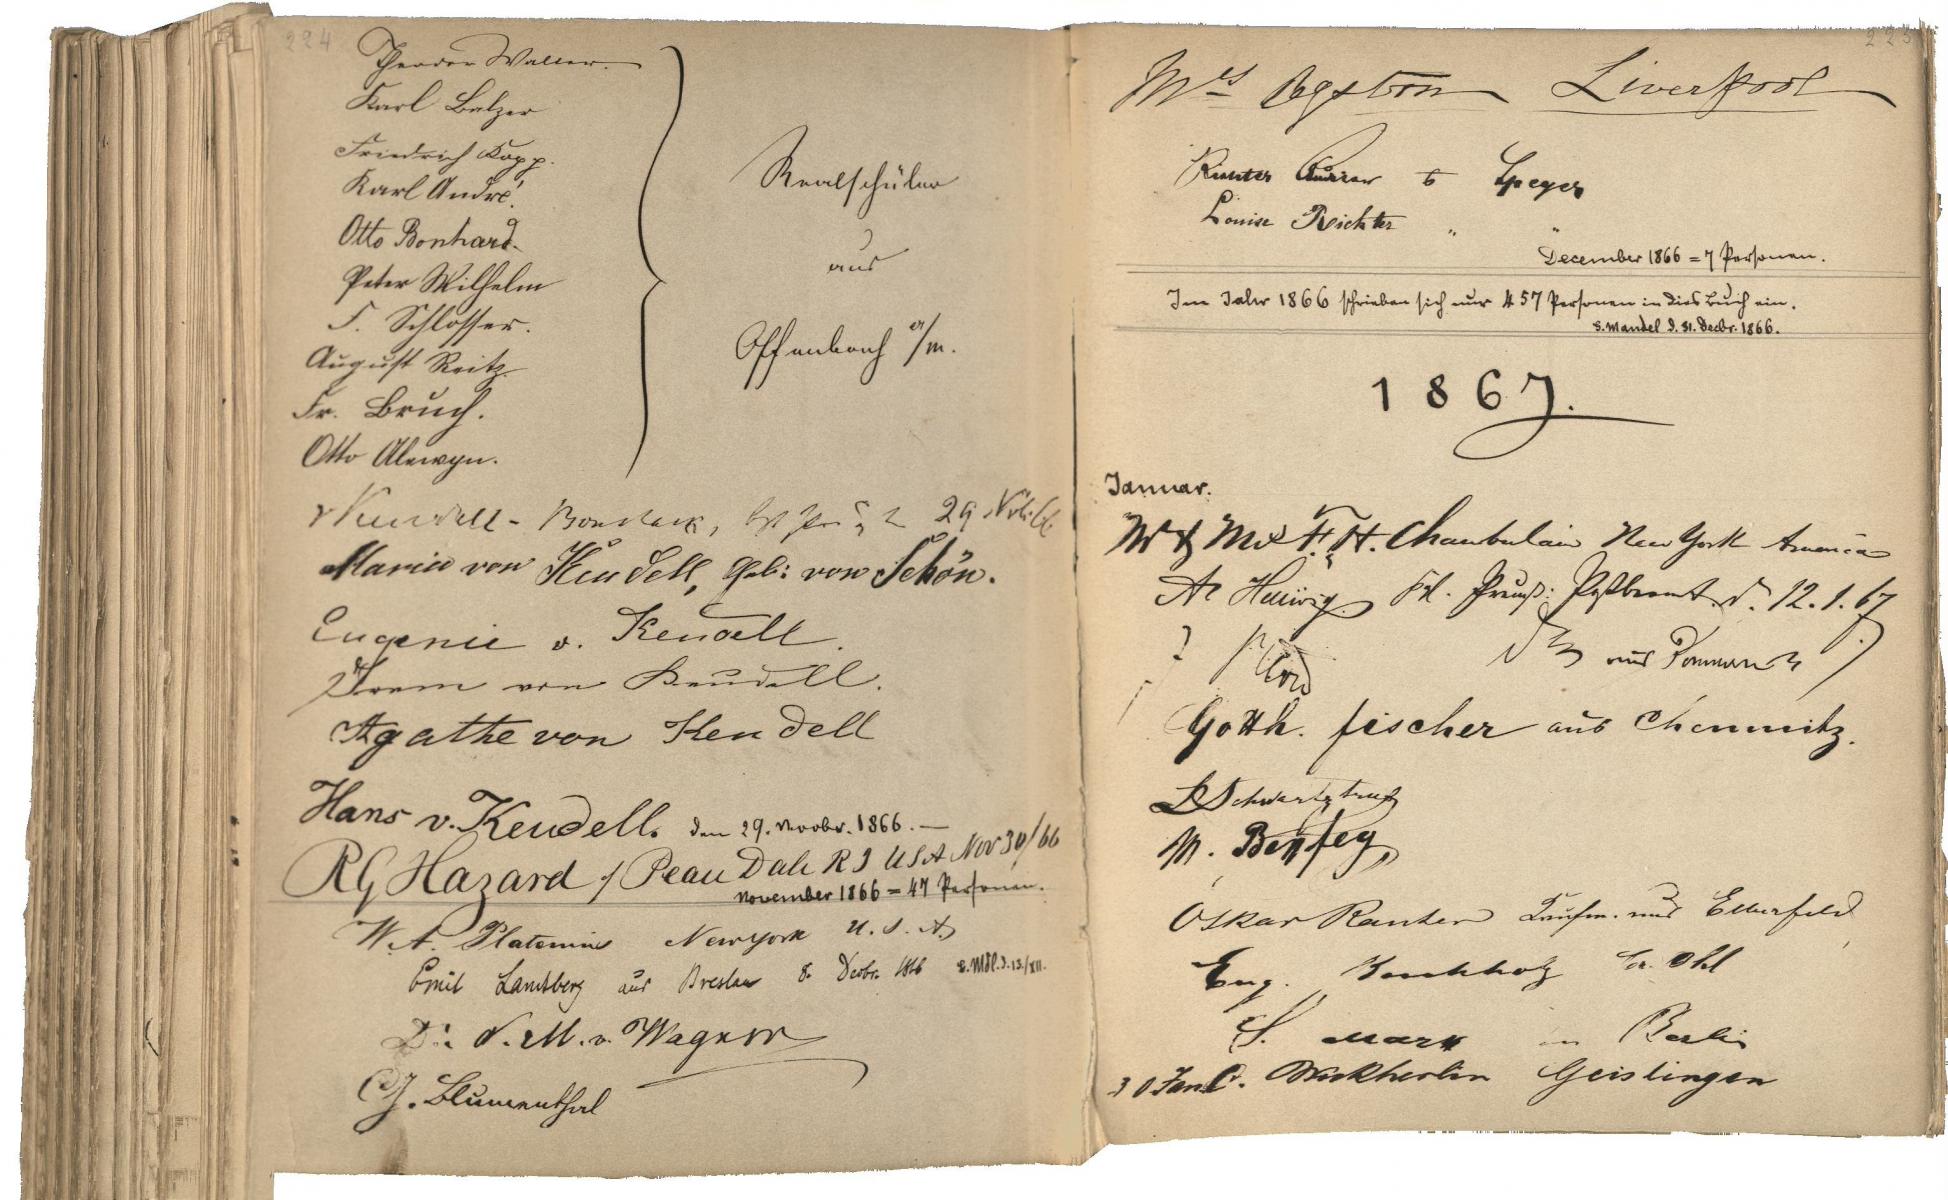 224
Theodor Walter.
Karl Balzer
Friedrich Kopp.
Karl André.
Otto Bonhard.
Peter Wilhelm
F. Schlosser.
August Reitz
Fr. Bruch.
Otto Alewyn.
Realschüler
aus
Offenbach a/m.
29 Nov. 66
Marie von Keudell, geb: von Schön.
Eugenie v. Keudell.
von Keudell.
Agathe von Keudell
Hans v. Keudell. den 29. Novbr. 1866. —
RG Hazard / Peace Dale R I USA Nov 30/66
November 1866 = 47 Personen.
W. A. Platenius New York U. S. A.
Emil Landsberg aus Breslau 8. Decbr. 1866 S. Mdl. d. 13./XII.
Dr. v. Wagner
J. Blumenthal
223
Mrs Ogston Liverpool
Speyer
Louise Richter " "
December 1866 = 7 Personen.
Im Jahr 1866 schrieben sich nur 457 Personen in dies Buch ein.
S. Mandel d. 31. Decbr. 1866.
1867.
Januar.
Mr & Mrs F. H. Chamberlain New York America
Hellwig Kl. Preuß: Postbeamt. d. 12. 1. 67
aus Pommern
Gotth. Fischer aus Chemnitz.
M. Benfey
Oskar Ranker Kaufm. aus Elberfeld
Eug. Buchholz Ohl
S. Marx in Berlin
30 Jan. C. Weckherlin Geislingen